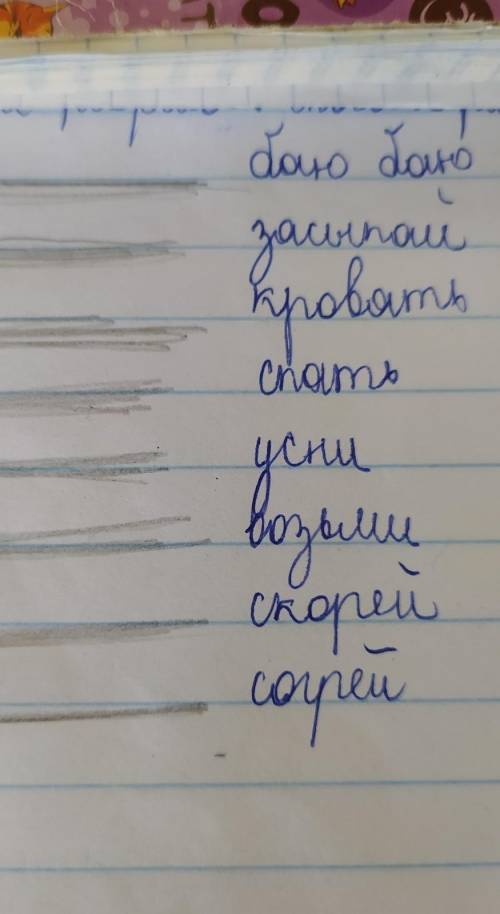 баю баю
засыпай
кровать
спать
усни
возьми
скорей
согрей